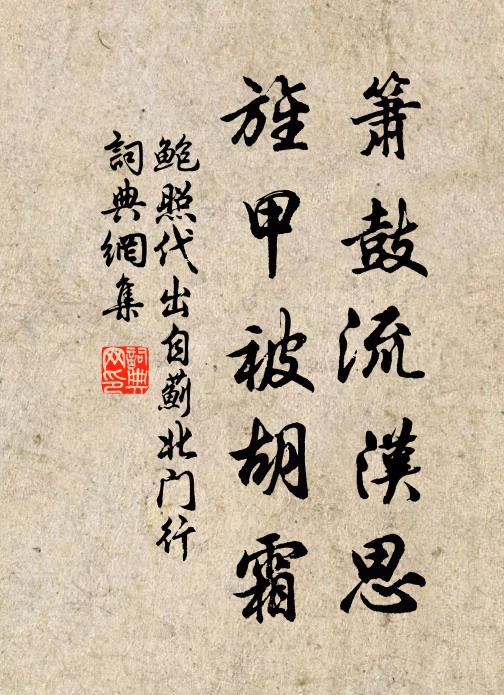 簫鼓流漢思
旌甲被胡霜
鮑照代出自薊北门行
詞典網集
詞典網印